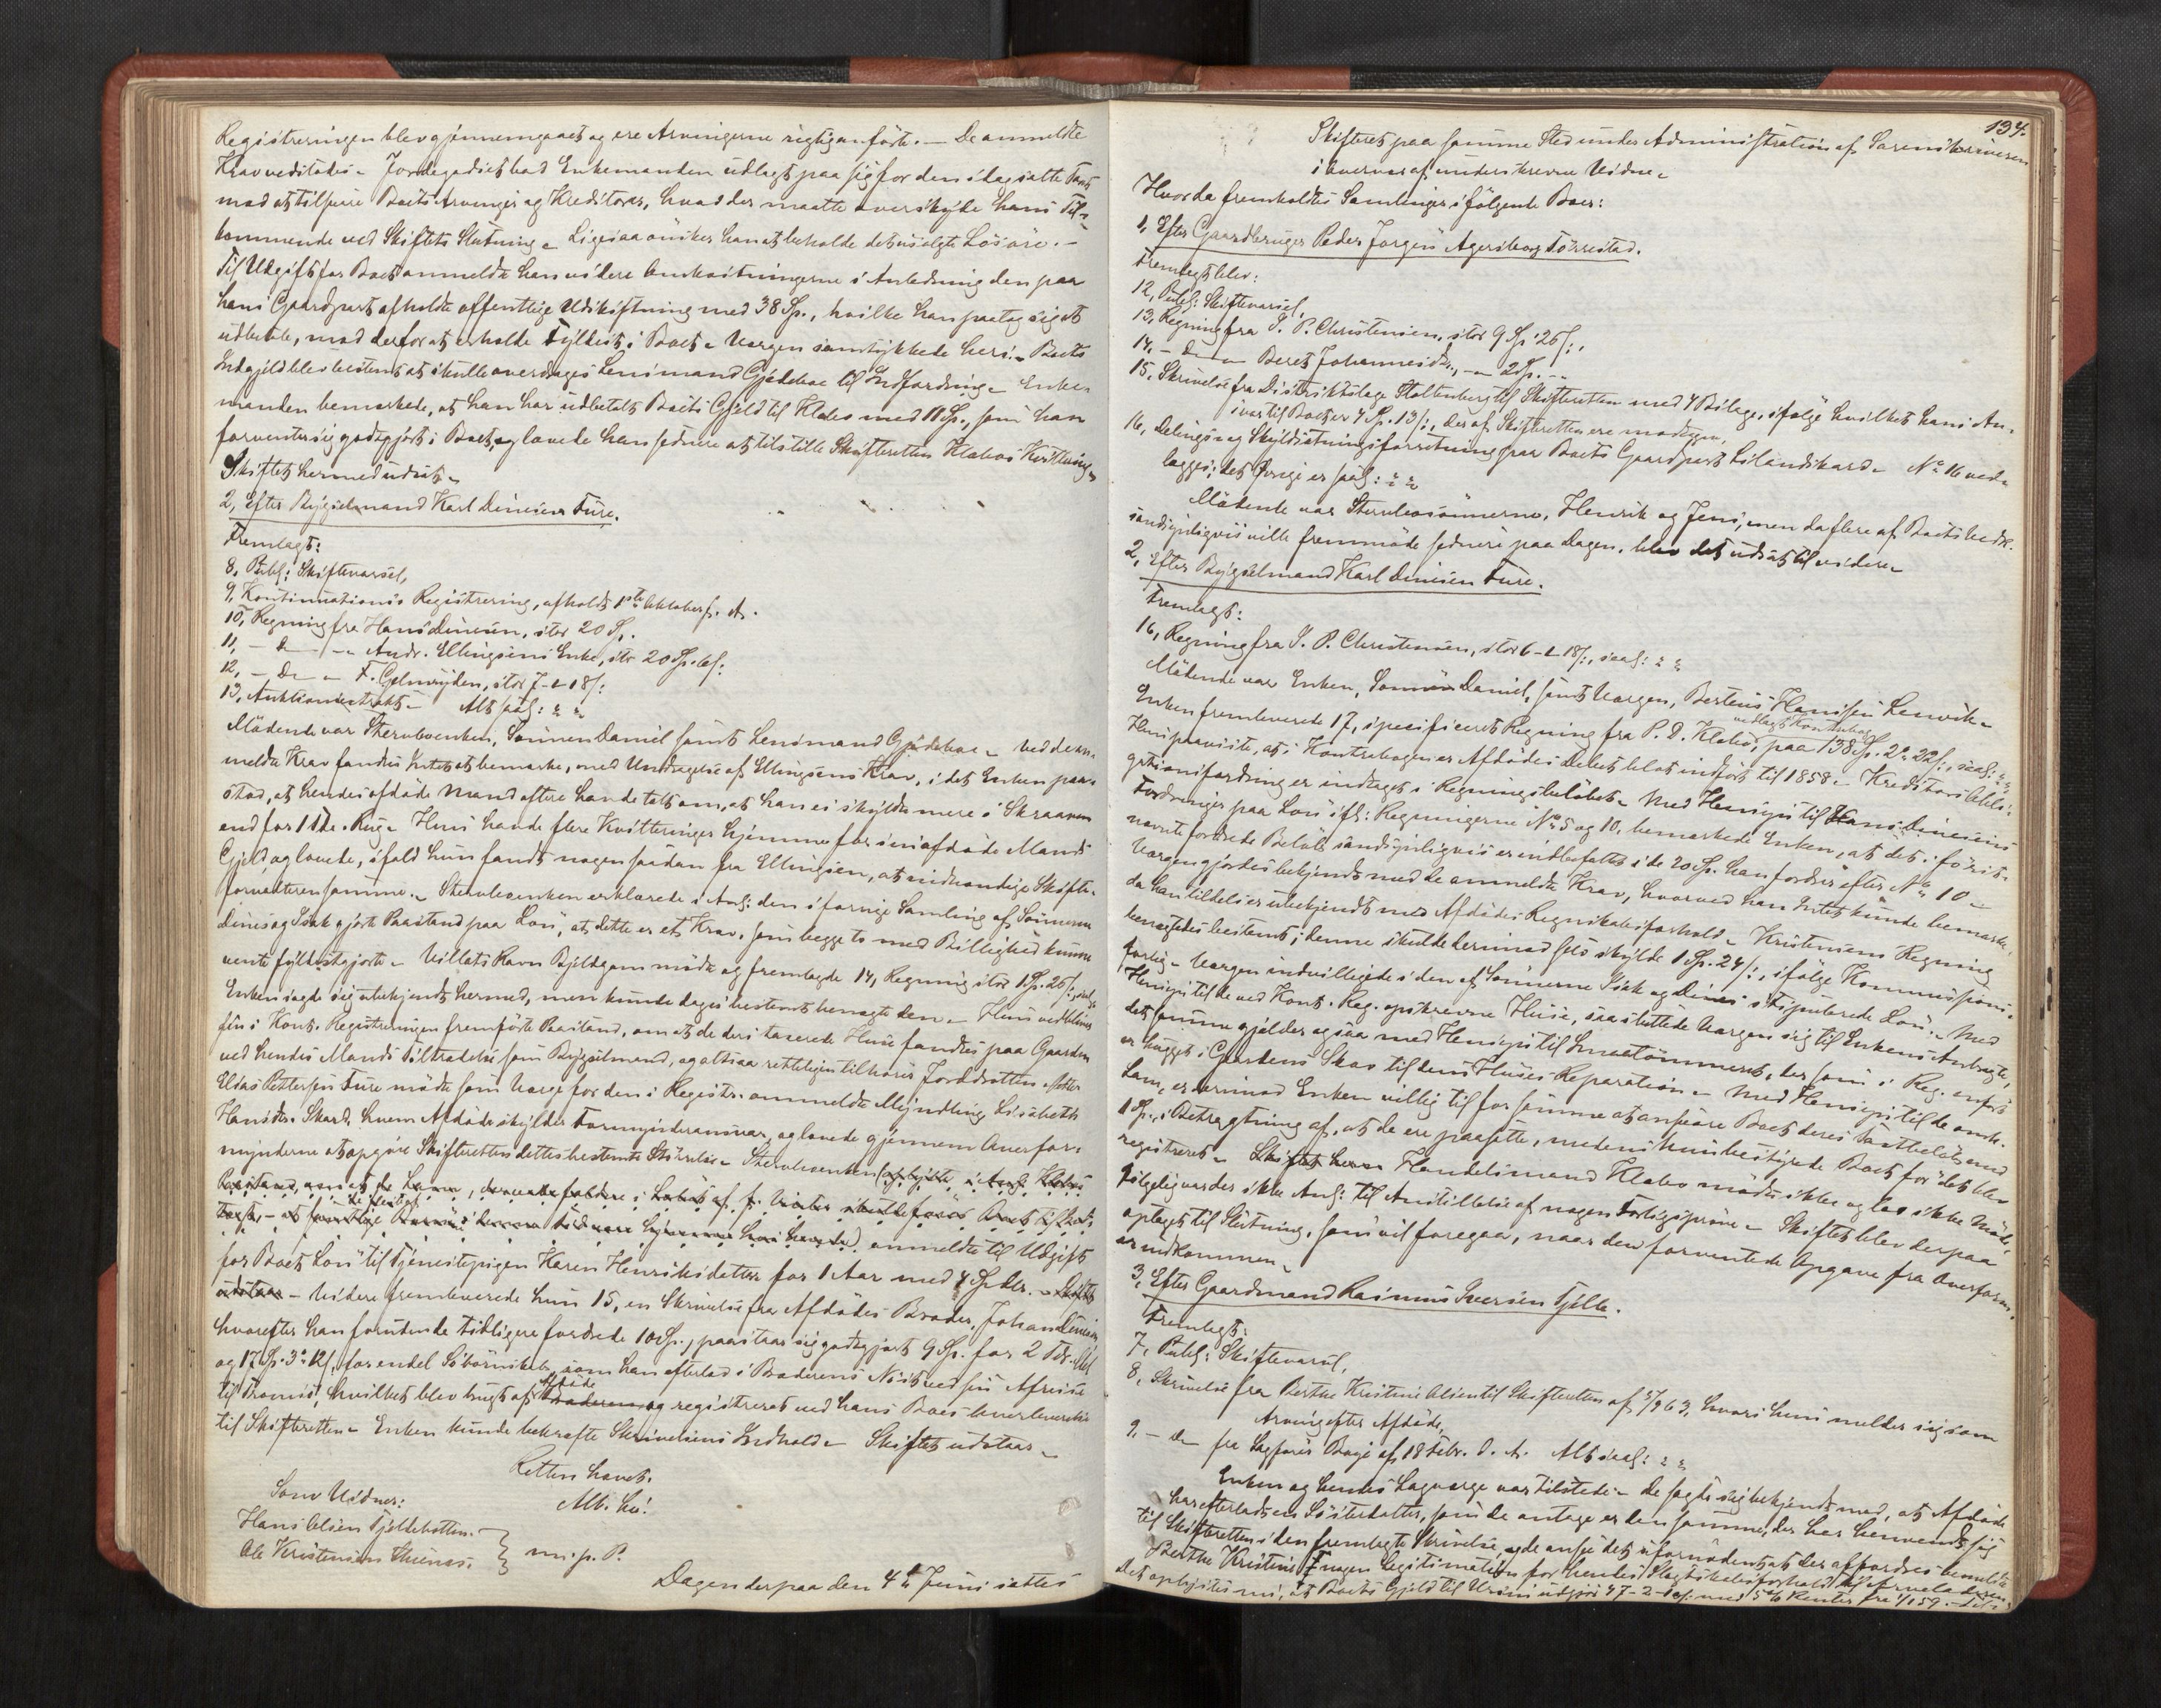 Registreringen blev gjennemgaaet og ere Arvingerne rigtig anførte. — De anmeldte
Krav vedstodes – Jordegodset bad Enkemanden udlagt paa sig for den i dag satte Taxt
mod at tilsvare Boets Arvinger og Kreditorer, hvad der maatte overskyde hans Til-
kommende ved Skiftets Slutning – Ligesaa ønsker han at beholde det usolgte Løsøre. –
Til Udgift for Boet anmeldte han videre Omkostningerne i Anledning den paa
hans Gaardpart afholdte offentlige Udskiftning med 38 Sp., hvilke han paatog sig at
udbetale, mod derfor at erholde Fyldest i Boet – Vergen samtykkede heri – Boets
Indgjeld blev bestemt at skulle overdrages Lensmand Gjødebae til Indfordring – Enke-
manden bemærkede, at han har udbetalt Boets Gjeld til Klæbo med 11 Sp., som han
forventer sig godtgjort i Boet, og lovede han senere at tilstille Skifteretten Klæbos Kvittering –
Skiftet hermed udsat –
2, Efter Bygselmand Karl Dinesen Fure.
Fremlagt:
8, Publ: Skiftevarsel,
9, Kontinuations Registrering, afholdt 1ste Oktober f. A.
10, Regning fra Hans Dinesen, stor 20 Sp.
11, – Do – Andr. Ellingsens Enke, stor 20 Sp.
12, – Do – F. Gylnsryden, stor 7 – 1 18 ß:
13, Auktionsextrakt – Alt saal:
Mødende var Stervboenken, Sønnen Daniel samt Lensmand Gjødebae – Ved de an-
meldte Krav fandtes Intet at bemærke, med Undtagelse af Ellingsens Krav, i det Enken paa-
stod, at hendes afdøde Mand oftere havde talt om, at han ei skyldte mere i Skraaven
end for 1 Tde. Rug – Hun havde flere Kvitteringer hjemme for sin afdøde Mands
Gjeld, og lovede, ifald hun fandt nogen saadan fra Ellingsen, at indhændige Skifte-
forvalteren samme. – Stervboenken erklærede i Anl: den i forrige Samling af Sønnerne
Dines og Isak gjorte Paastand paa Løn, at dette er et Krav, som begge to med Billighed kunne
vente fyldestgjort – Villats Ravn Bjeldgam mødte og fremlagde 14, Regning stor 1 Sp. 26 ß:
Enken sagde sig ubekjendt hermed, men kunde dog ei bestemt benægte den – Hun vedblev
sin i Kont. Registreringen fremførte Paastand, om at de deri taxerede Huse fandtes paa Gaarden
ved hendes Mands Tiltrædelse som Bygselmand, og altsaa retteligen tilhører Jorddrotten –
Elias Pettersen Fure mødte som Verge for den i Registr. anmeldte Myndling Lisabeth
Hansdtr. Skard, hvem Afdøde skylder Formynderansvar, og lovede gjennem Overfor-
mynderne at opgive Skifteretten dettes bestemte Størrelse – Stervboenken
Paastand, om at
anmeldte til Udgift
for Boet Løn til Tjenestepigen Karen Henriksdatter for 1 Aar med 4 Sp.
udstaar – Videre fremleverede hun 15, en Skrivelse fra Afdødes Broder, Johan Dinesen
hvorefter han foruden de tidligere fordrede 10 Sp., paastaar sig godtgjort 9 Sp. for 2 Tdr. Mel
og 17 Sp. 3 o 12 ß. for endel Søbørnskab, som han efterlod i Broderens Nøst ved sin Afreise
til Tromsø, hvilket blev brugt af Afdøde og registreret ved hans Boes Overleverelse
til Skifteretten – Enken kunde bekræfte Skrivelsens Indhold – Skiftet udstaar –
Retten hævet.
Alb. Lu:
Som Vidner:
Hans Olsen Tjeldebotten.
Ole Kristensen Skuenes. } m. p. P.
Dagen derpaa den 4de Juni sattes
134.
Skifteret paa samme Sted under Administration af Sorenskriveren
i Overvær af underskrevne Vidne –
Hvorda fremholdtes Samlinger i følgende Boer:
1, Efter Gaardbruger Peder Jørgen Agersborg Torrestad.
Fremlagt blev:
12, Publ: Skiftevarsel,
13, Regning fra I. P. Christensen, stor 9 Sp. 26 ß:,
14, – Do – Beret Johannesdtr., – 2 Sp. –
15, Skrivelse fra Distriktslæge Stoltenberg til Skifteretten med 4 Bilage, ifølge hvilket hans An-
svar til Boet er 4 Sp. 13 ß:, der af Skifteretten ere modtagne,
16, Delings og Skyldsætningsforretning paa Boets Gaardpart Lilandskard – No 16 ved-
lægges; det Øvrige er saal:
Mødende var Stervbosønnerne, Henrik og Jens, men da flere af Boets Vedk.
sandsynligviis ville fremmøde senere paa Dagen, blev det udsat til videre –
2, Efter Bygselmand Karl Dinesen Fure.
Fremlagt:
16, Regning fra I. P. Christensen, stor 6 – 2 18 ß:, saal:
Mødende var Enken, Sønnen Daniel, samt Vergen, Berteus Hansen Lenvik –
Enken fremleverede 17, specificeret Regning fra P. D. Klæbo, vedlagt Kontrabog, paa 138 Sp. 2 o 22 ß:, saal:
Hun paaviste, at i Kontrabogen er Afdødes Debet blot indført til 1858 – Kreditors Obli-
gationsfordring er indtaget i Regningsbeløbet – Med Hensyn til Hans Dinesens
Fordringer paa Løn ifl: Regningerne No 5 og 10, bemærkede Enken, at det i først-
nævnte fordrede Beløb sandsynligviis er indbefattet i de 20 Sp. han fordrer efter No 10 –
Vergen gjordes bekjendt med de anmeldte Krav, hvorved han Intet kunde bemærke,
da han tildels er ubekjendt med Afdødes Regnskabsforhold – Kristensens Regning
benægtedes bestemt; denne skulde derimod selv skylde 1 Sp. 24 ß:, ifølge Kommissions-
forlig – Vergen indvilligede i den af Sønnerne Isak og Dines stipulerede Løn – Med
Hensyn til de ved Kont. Reg. opskrevne Huse, saa støttede Vergen sig til Enkens Andragte,
det samme gjelder ogsaa med Hensyn til Smaatømmeret, der som i Reg. anført
er hugget i Gaardens Skov til dens Huses Reparation – Med Hensyn til de omh.
Lam, er derimod Enken villig til for samme at ansvare Boet deres Taxtbeløb med
1 Sp., i Betragtning af, at de ere paasatte, medens hun bestyrede Boet før det blev
registreret – Handelsmand Klæbo mødte ikke og lod ikke møde,
følgelig var der ikke Anl: til Anstillelse af nogen Forligsprøve – Skiftet blev derpaa
optaget til Slutning, som vil foregaa, naar den forventede Opgave fra Overform.
er indkommen –
3, Efter Gaardmand Rasmus Iversen Tjelle.
Fremlagt:
7, Publ: Skiftevarsel,
8, Skrivelse fra Berthe Kristine Olsen til Skifteretten af 5/9 63, hvori hun melder sig som
Arving efter Afdøde,
9, – Do fra Sagfører Boye af 18 Febr. d. A. Alt saal:
Enken og hendes Laugverge var tilstede – De sagde sig bekjendt med, at Afdøde
har efterladt en Søsterdatter, som de antage er den samme, der har henvendt sig
til Skifteretten i den fremlagte Skrivelse, og de anse det ufornødent at der affordres bemeldte
Berthe Kristine nogen Legitimation for hendes Slægtskabsforhold til Arveladeren.
Det oplystes nu, at Boets Gjeld til Ursin udgjør 47 – 2 – med 5 % Renter fra 1/1 59. –